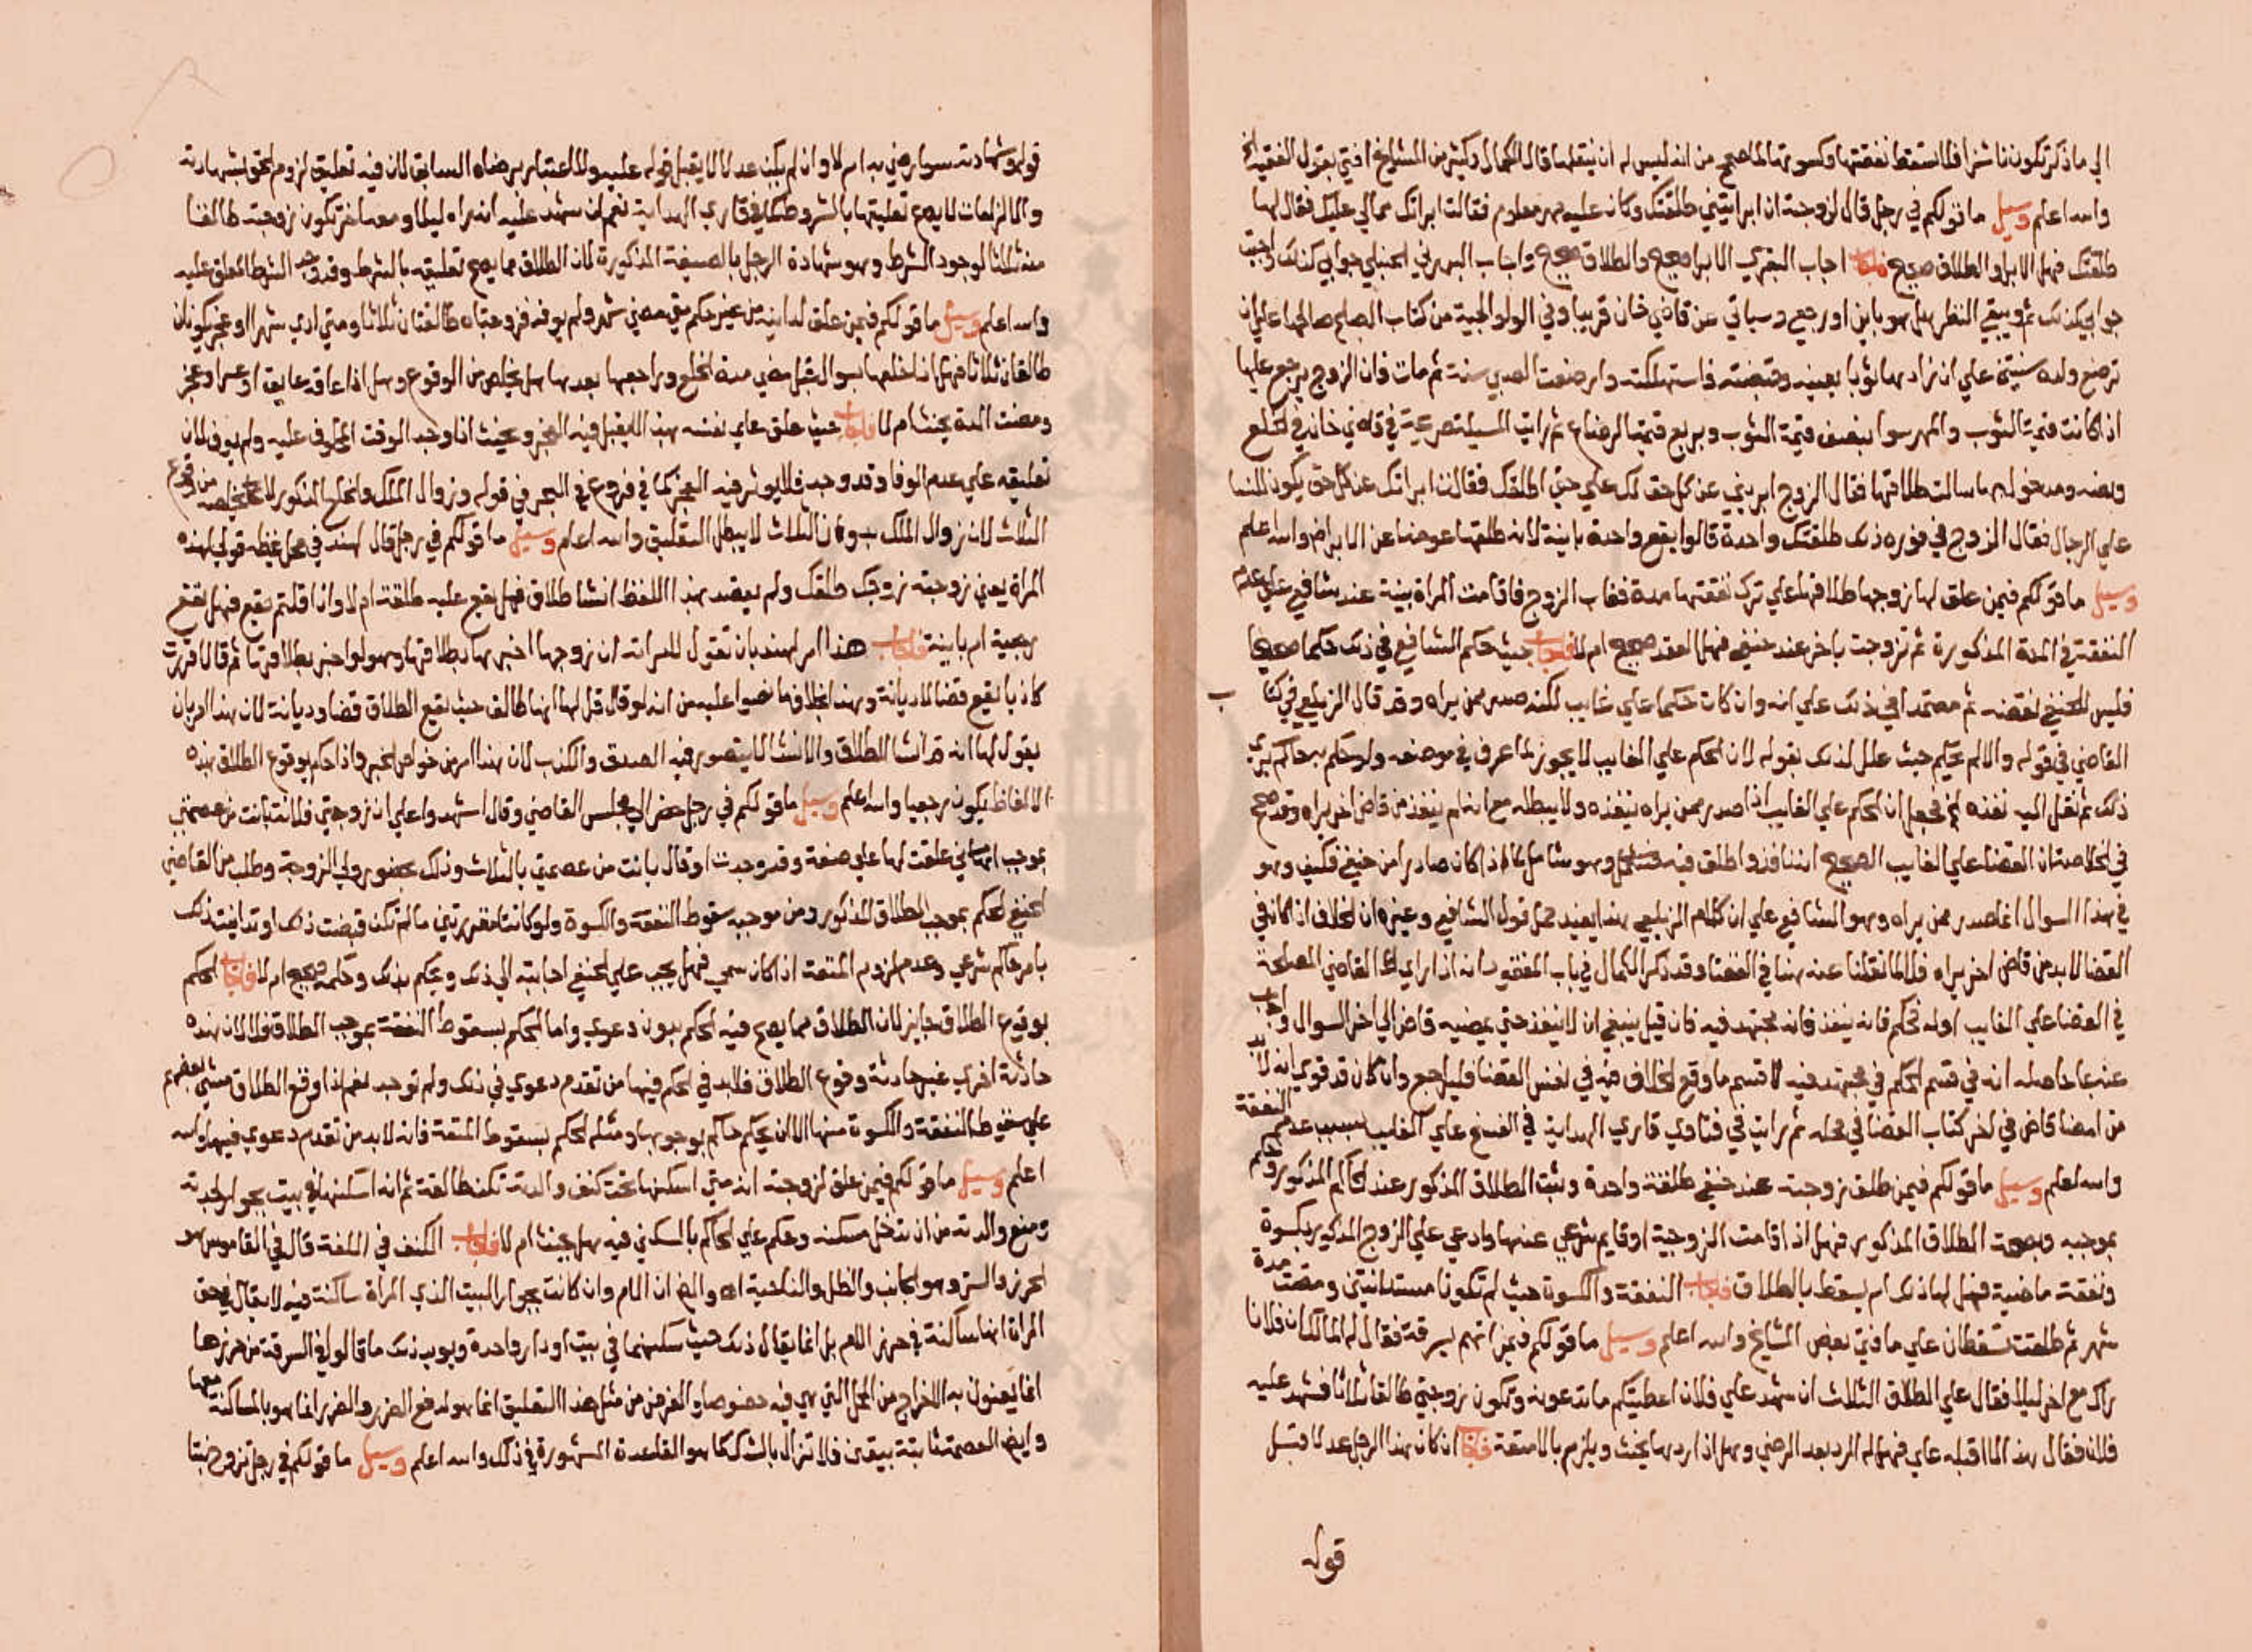 الي ما ذكر تكون ناشزا فلا تسقط نفقتها وكسوتها لما صحح من انه ليس له ان ينقلها قال الكمال وكثير من المشايخ افتي بقول الفقيه
والله اعلم وسيل ما قولكم في رجل قال لزوجته ان ابرايتيني طلقتك وكان عليه مهر معلوم فقالت ابراتك مما لي عليك فقال لها
طلقتك فهل الابرا والطلاق صحيح فاجاب اجاب البحري الابرا صحيح والطلاق صحيح واجاب البهوتي الحنبلي جوابي كذلك واجبت
جوابي كذلك ثم ويبقي النظر هل هو باين او رجعي وسياتي عن قاضي خان قريبا وفي الولوالجية من كتاب الصلح صالحها علي ان
ترضع ولده سنتين علي ان زادها ثوبا بعينه وقبضته فاستهلكته وارضعت الصبي سنة ثم مات فان الزوج يرجع عليها
اذا كانت قيمة الثوب والمهر سوا بنصف قيمة الثوب وبربع قيمة الرضاع ثم رايت المسيلة صريحة في قاضي خان في الخلع
ونصه ومدخولة ما سالت طلاقها فقال الزوج ابريني عن كل حق لك علي حتي اطلقك فقالت ابراتك عن كل حق يكون للنسا
علي الرجال فقال الزوج في فوره ذلك طلقتك واحدة قالوا يقع واحدة باينة لانه طلقها عوضا عن الابرا والله اعلم
وسيل ما قولكم فيمن علق لها زوجها طلاقها علي ترك نفقتها مدة فغاب الزوج فاقامت المراة بينة عند شافعي علي عدم
النفقة في المدة المذكورة ثم تزوجت باخر عند حنفي فهل العقد صحيح ام لا فاجاب حيث حكم الشافعي في ذلك حكما صحيحا
فليس للحنفي نقضه ثم معتمدا في ذلك علي انه وان كان حكما علي غايب لكنه صدر ممن يراه وقد قال الزيلعي في كتاب
القاضي في قوله والا لم يحكم حيث علل لذلك بقوله لان الحكم علي الغايب لا يجوز لما عرف في موضعه ولو حكم به حاكم يري
ذلك ثم نقل اليه نفذه الخ فجعل ان الحكم علي الغايب اذا صدر ممن يراه ينفذه ولا يبطله مع انه لم ينفذ من قاض اخر يراه وقد صح
في الخلاصة ان القضا علي الغايب الصحيح انه نافذ واطلق فيه وهو شامل لما اذا كان صادرا من حنفي فكيف وهو
في هذا السوال انما صدر ممن يراه وهو الشافعي علي ان كلام الزيلعي هذا يفيد محل قول الشافعي وغيره ان الخلاف اذا كان في
القضا لا بد من قاض اخر يراه فلا لما نقلنا عنه هنا في القضا وقد ذكر الكمال في باب المفقود انه اذا راي القاضي المصلحة
في القضا علي الغايب او له فحكم فانه ينفذ فانه مجتهد فيه فان قيل ينبغي ان لا ينفذ حتي يمضيه قاض الي اخر السوال واجاب
عنه بما حاصله انه في قسم الحكم في مجتهد فيه لا قسم ما وقع الخلاف فيه في نفس القضا فليراجع وان كان قد قوي انه لا بد
من امضا قاض في اخر كتاب القضا في محله ثم رايت في فتاوي قاري الهداية في الفسخ علي الغايب بسبب عدم النفقة
والله اعلم وسيل ما قولكم فيمن طلق زوجته عند حنفي طلقة واحدة وثبت الطلاق المذكور عند الحاكم المذكور وحكم
بموجبه وبصحة الطلاق المذكور فهل اذا اقامت الزوجية او قايم شرعي عنها وادعي علي الزوج المذكور بكسوة
ونفقة ماضية فهل لها ذلك ام يسقط بالطلاق فاجاب النفقة والكسوة حيث لم تكونا مستدانتين ومضت مدة
شهر ثم طلقت تسقطان علي ما افتي بعض المشايخ والله اعلم وسيل ما قولكم فيمن اتهم بسرقة فقال له المالك ان فلانا
راك مع اخر ليلا فقال علي الطلاق الثلاث ان شهد علي فلان اعطيتكم ما تدعونه وتكون زوجتي طالقا ثلاثا فشهد عليه
فلان فقال هذا لا اقبله علي فهل له الرد بعد الرضي وهل اذا ردها يحنث ويلزم بالامتعة فاجاب ان كان هذا الرجل عدلا قبل
قوله
قوله وشهادته سوا رضي به ام لا وان لم يكن عدلا لا يقبل قوله عليه ولا اعتبار برضاه السابق لان فيه تعليق لزوم الحق بشهادته
والالزامات لا يصح تعليقها بالشروط كما في قاري الهداية نعم ان شهد عليه انه راه ليلا ومعه اخر تكون زوجته طالقا
منه ثلاثا لوجود الشرط وهو شهادة الرجل بالصيغة المذكورة لان الطلاق مما يصح تعليقه بالشرط وقد وجد الشرط المعلق عليه
والله اعلم وسيل ما قولكم فيمن علق لداينه من غير حكم متي مضي شهر ولم يوفه فزوجتاه طالقتان ثلاثا ومتي ادي شهرا وعجز يكونان
طالقان ثلاثا فهل اذا خلعها بسوال قبل مضي مدة الخلع وراجعها بعدها هل يخلص من الوقوع وهل اذا عاقه عايق او عسر وعجز
ومضت المدة يحنث ام لا فاجاب حيث علق علي نفسه بهذا لا يقبل فيه العجز ويحنث اذا وجد الوقت المحلوف عليه ولم يوف لان
تعليقه علي عدم الوفا وقد وجد فلا يوثر فيه العجز كما في فروع في البحر في قوله وزوال الملك والخلع المذكور لا يخلصه من وقوع
الثلاث لان زوال الملك بدون الثلاث لا يبطل التعليق والله اعلم وسيل ما قولكم في رجل قال لهند في محل غيظه قولي لهذه
المراة يعني زوجته زوجك طلقك ولم يقصد بهذا اللفظ انشا طلاق فهل يقع عليه طلقة ام لا وان قلتم يقع فهل تقع
رجعية ام باينة فاجاب هذا امر لهند بان تقول للمراة ان زوجها اخبرها بطلاقها وهو لو اخبر بطلاقها ثم قال اقررت
كاذبا تقع قضا لا ديانة وهذا بخلاف ما نصوا عليه من انه لو قال قل لها انها طالق حيث تقع الطلاق قضا وديانة لان هذا امر بان
يقول لها انه قد انشا الطلاق والانشا لا يتصور فيه الصدق والكذب لان هذا امر من خواص الخبر واذا حكم بوقوع الطلاق بهذه
الالفاظ يكون رجعيا والله اعلم وسيل ما قولكم في رجل حضر الي مجلس القاضي وقال اشهدوا علي ان زوجتي فلانة بانت من عصمتي
بموجب انني علقت لها علي صفة وقد وجدت او قال بانت من عصمتي بالثلاث وذلك بحضور ولي الزوجة وطلب من القاضي
الحنفي الحكم بموجب الطلاق المذكور ومن موجبه سقوط النفقة والكسوة ولو كانتا مقررتين ما لم تكن قبضت ذلك او تداينت ذلك
بامر حاكم شرعي وعدم لزوم المتعة اذا كان سمي فهل يجب علي الحنفي اجابته الي ذلك ويحكم بذلك وحكمه صحيح ام لا فاجاب الحكم
بوقوع الطلاق جايز لان الطلاق مما يصح فيه الحكم بدون دعوي واما الحكم بسقوط النفقة بموجب الطلاق فلا لان هذه
حادثة اخري غير حادثة وقوع الطلاق فلا بد في الحكم فيها من تقدم دعوي في ذلك ولم توجد نعم اذا وقع الطلاق مشي بعضهم
علي سقوط النفقة والكسوة منها الا ان يحكم حاكم بوجوبها ومثله الحكم بسقوط المتعة فانه لا بد من تقدم دعوي فيها والله
اعلم وسيل ما قولكم فيمن علق لزوجته انه متي اسكنها تحت كنف والدته تكن طالقة ثم انه اسكنها في بيت بجوار والدته
ومنع والدته من ان تدخل مسكنه وحكم علي الحاكم بالسكني فيه هل يحنث ام لا فاجاب الكنف في اللغة قال في القاموس هو
الحرز والستر وهو الجانب والظل والناحية اه والمراد ان الام وان كانت بجوار البيت الذي المراة ساكنة فيه لا يقال في حق
المراة انها ساكنة في حرز الام بل انما يقال ذلك حيث سكنهما في بيت او دار واحدة ويويد ذلك ما قالوا في السرقة من حرزها
انما يعنون به الاخراج من المحل التي هي فيه خصوصا والغرض من مثل هذا التعليق انما هو لدفع الضرر والضرر انما هو بالمساكنة معها
وايض العصمة ثابتة بيقين فلا تزال بالشك كما هو القاعدة المشهورة في ذلك والله اعلم وسيل ما قولكم في رجل تزوج بنتا